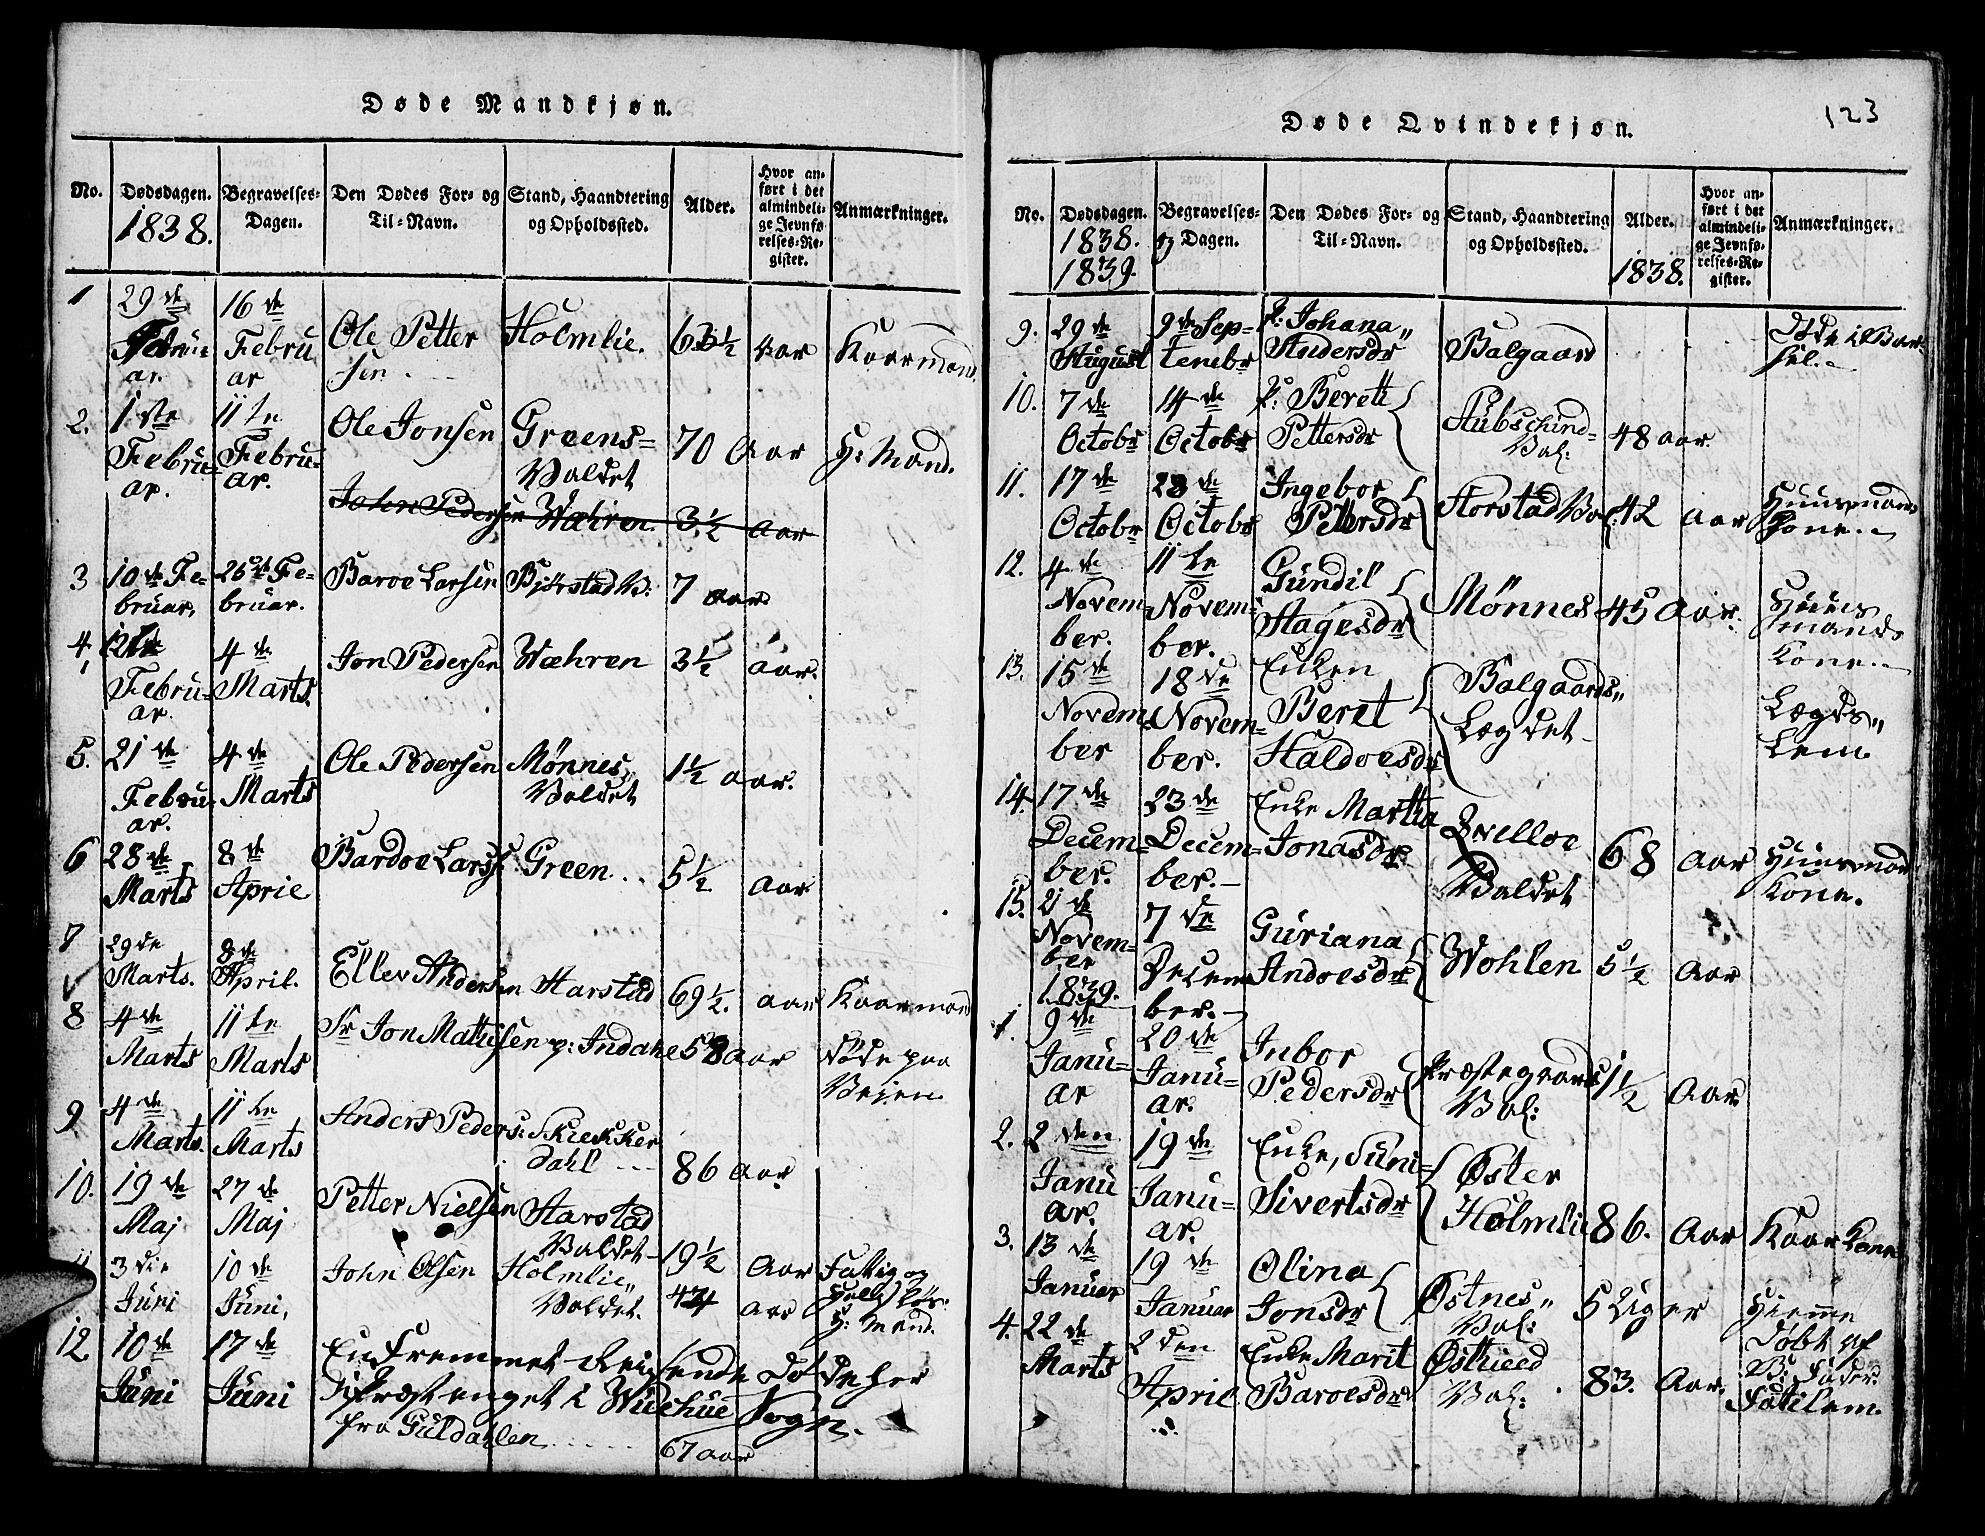 Døde Mandkjøn.
No. Dødsdagen. 1838. Begravelses-Dagen. Den Dødes For- og Til-Navn. Stand, Haandtering og Opholdssted. Alder. Hvor anført i det almindelige Jevnførelses-Register. Anmærkninger.
1 29de Februar. 16de Februar Ole Pettersen Holmlie. 63½ aar Kaarmand.
2. 1ste Februar. 11te Februar. Ole Jonsen Greens=Valdet 70 Aar H: Mand.
John Pedersen Wæhren. 3½ aar
3 10de Februar, 25de Februar. Baroe Larsen Bjørstad V: 7 aar
4, 12te Februar. 4de Marts. Jon Pedersen Wæhren 3½ aar.
5. 21de Februar. 4de Marts Ole Pedersen Mønnes Valdet 1½ aar.
6 28de Marts 8de Aprie Bardoe Larss: Green... 5½ aar
7 29de Marts. 8de April. Ellev Andersen Starstad 69½. aar Kaarmand
8 4de Marts 11te Marts Sr Jon Matiisen p: Indahl 58 aar Døde paa Veien
9 4de Marts. 11te Marts Anders Peders: Skiekkerdahl 86 aar
10. 19de Maj 27de Maj Petter Nielsen Starstad Valdet 19½ Aar
3die Juni 10de Juni, John Olsen Holmlie,, Valdet. 44 aar Fattig og H: Mand.
12. 10de Juni 17de Juni En Fremmet Reisende Døde her
i Præstenget i Sogn.
fra Guldahlen..... 67 aar
Døde Qvindekjøn.
123
No. Dødsdagen. 1838. 1839. Begravelses-Dagen. Den Dødes For- og Til-Navn. Stand, Haandtering og Opholdssted. Alder. 1838. Hvor anført i det almindelige Jevnførelses-Register. Anmærkninger.
9. 29de August 9de Septembr p: Johana,, Andersdr Balgaard Døde i Barsel.
10. 7de Octobr 14de Octobr p: Berett Pettersdr Val: 48 aar
11. 17de Octobr 28de Octobr Ingebor Pettersdr Storstad Val: 42 aar Huusmands Kone.
12. 4de November. 11te November. Gundil Hagesdr Mønnes 45 Aar. Huusmands Kone.
13. 15de November 18de November. Enken Beret Haldoesdr Balgaards,, Legdet Lægds,, Lem
14 17de December. 23de December. Enke Martha Jonasdr Valdet 68 aar Huusmand Kone.
15. 21de November 7de December. Guriana Andoesdr Wohlen 5½ aar
1839.
1. 9de Januar 20de Januar. Inbor Pedersdr Præstegaards Val: 1½ Aar.
2. 2den Januar. 19de Januar. Enke, Suni Sivertsdr Øster Holmlie 86. aar Kaar Kone
3. 13de Januar 19de Januar Olina Jonsdr Østnes,, Val: 5 Uger Hiemme Døbt af B: Fader.
4. 22de Marts 2den Aprie Enke Marit Baroesdr Val: 83. Aar. Fatilem.